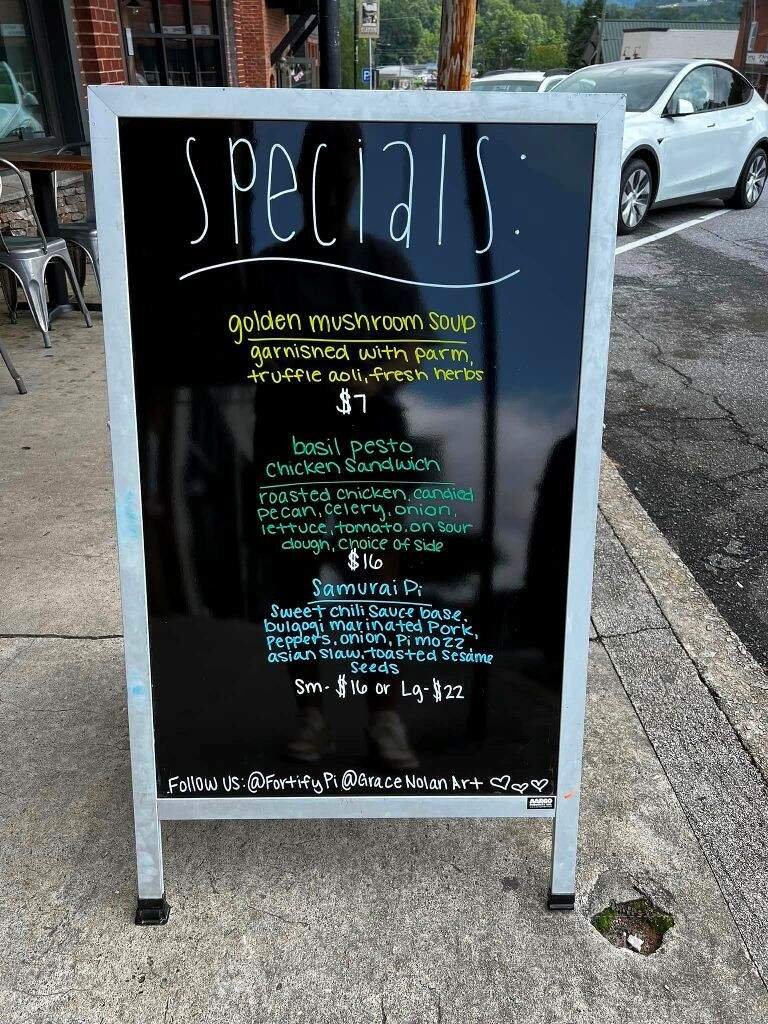 specials:
golden mushroom soup
garnished with parm,
truffle aoli, fresh herbs
$7
basil pesto
chicken sandwich
roasted chicken, candied
pecan, celery, onion,
lettuce, tomato. on sour
dough, choice of side
$16
Samurai Pi
sweet chili sauce base,
bulgogi marinated pork,
peppers, onion, Pi mozz,
asian slaw, toasted sesame
seeds
Sm- $16 or Lg- $22
Follow us: @FortifyPi @GraceNolanArt
P